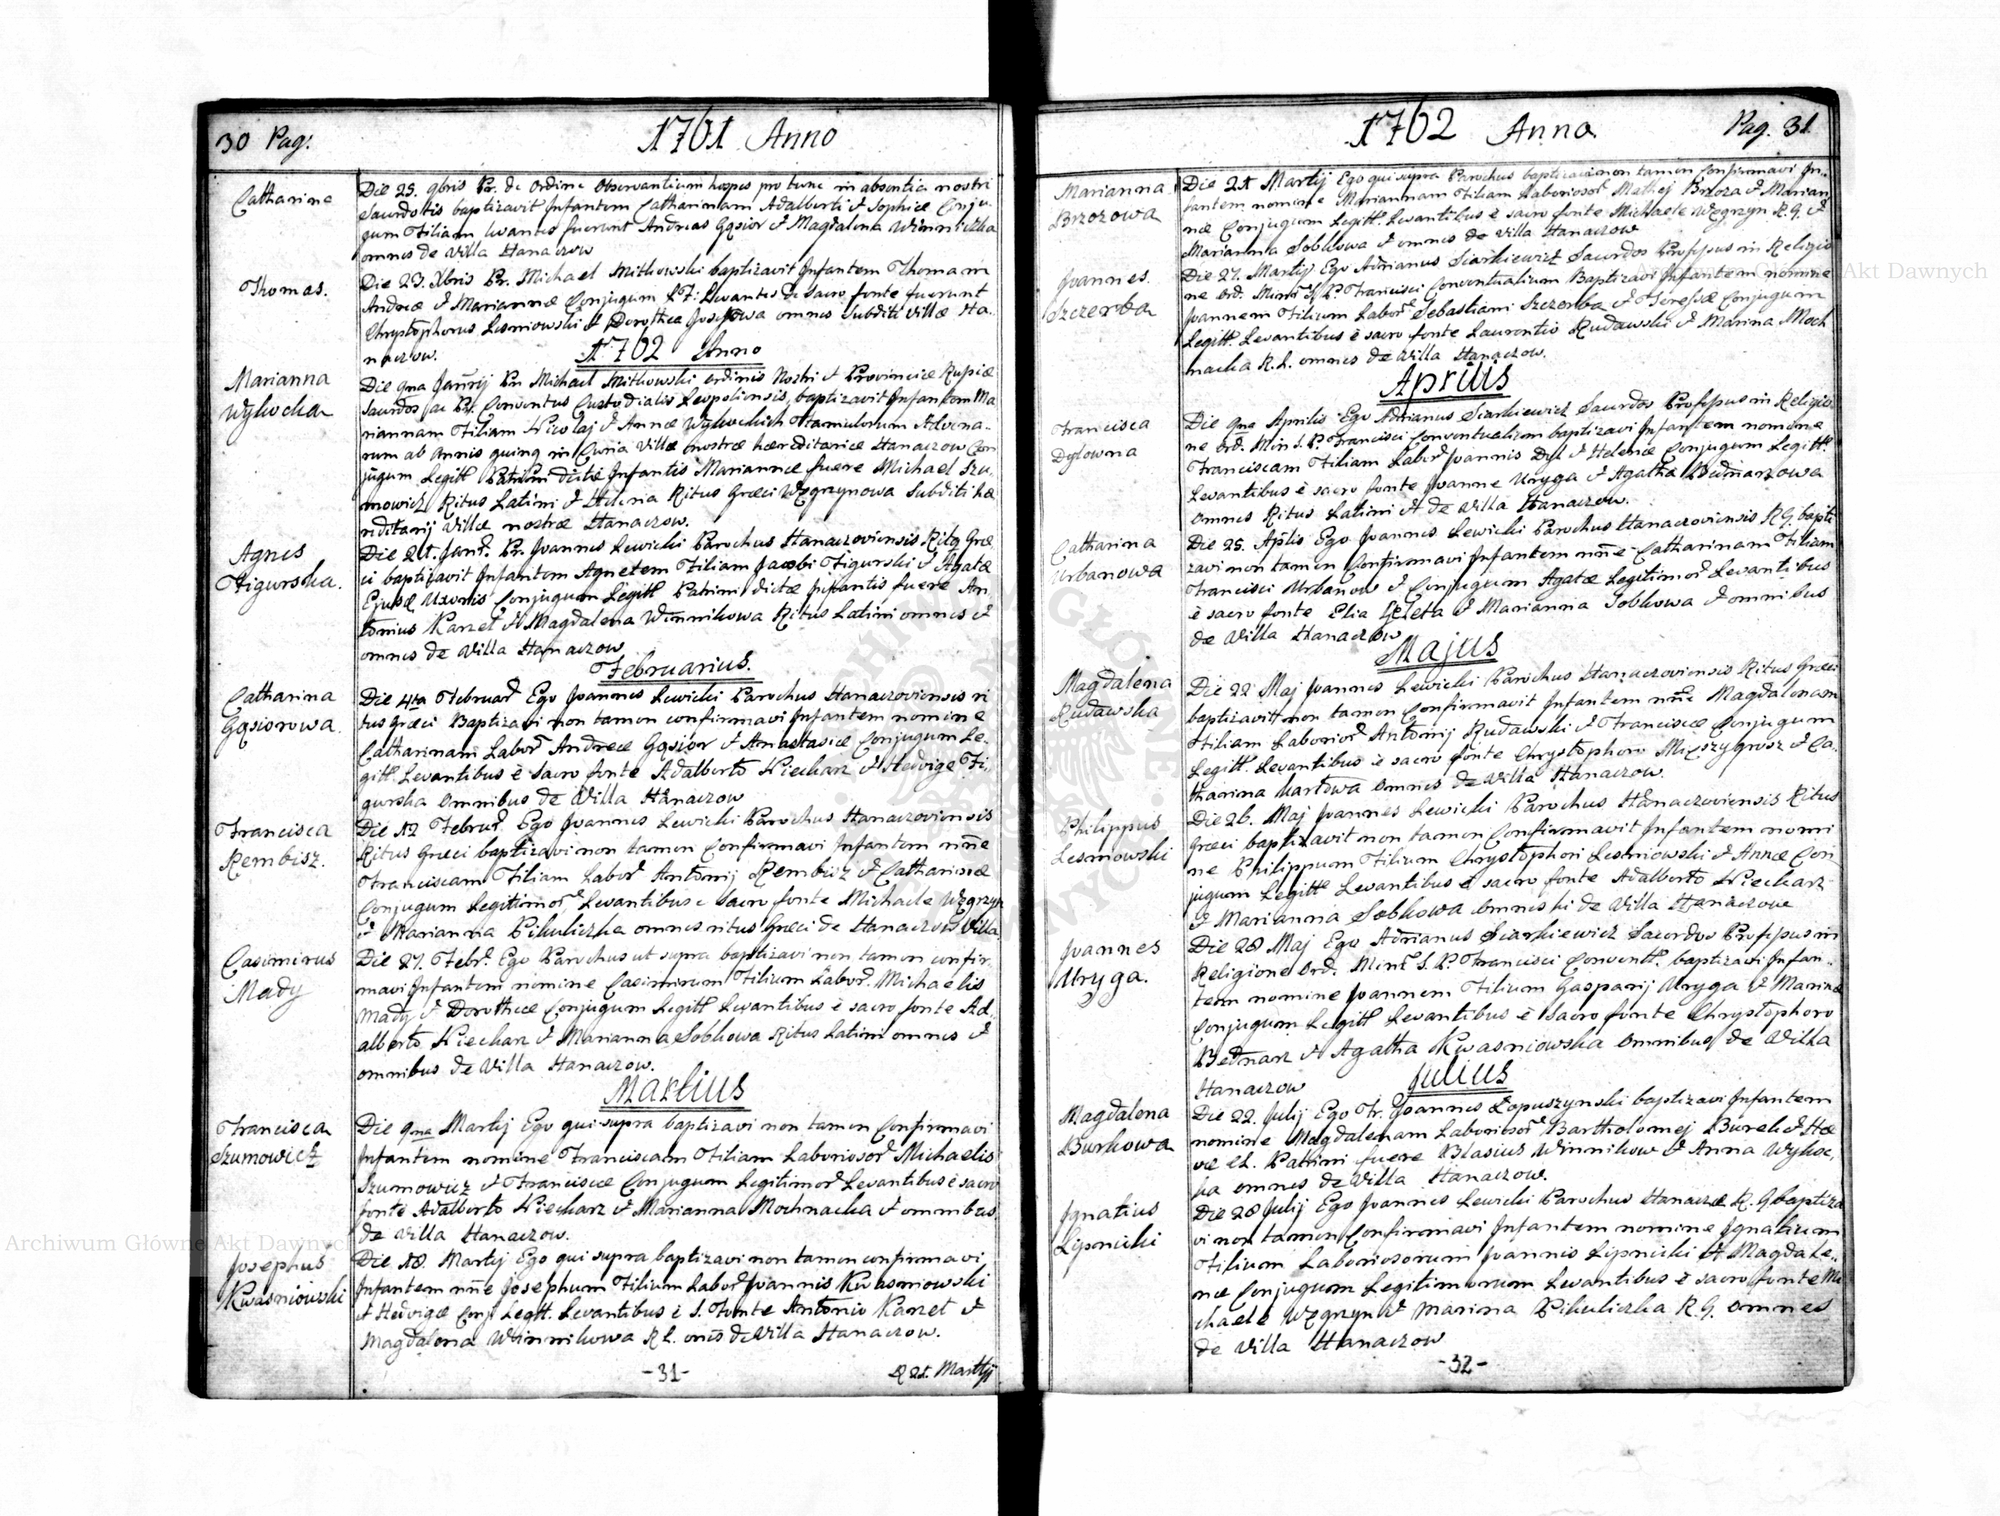 30 Pag:
1761 Anno
Catharina
Die 25. 9bris Pr. de Ordine Observantium hospes pro tunc in absentia nostri
Sacerdotis baptizavit Infantem Catharinam Adalberti et Sophiæ Conju-
gum Filiam levantes fuerunt Andreas Gąsior et Magdalena Winniczka
omnes de Villa Hanaczow
Thomas.
Die 23. Xbris Pr. Michael Mitkowski baptizavit Infantem Thomam
Andreæ et Mariannæ Conjugum L F: Levantes de Sacro fonte fuerunt
Chrystophorus Lesniowski et Dorothea Josefowa omnes Subditi Villæ Ha-
naczow.
1762 Anno
Marianna
Wykocka
Die 9na Janrij Pr. Michael Mitkowski ordinis Nostri et Provinciæ Rusiæ
Sacerdos ac Pr. Conventus Custodialis Leopoliensis, baptizavit Infantem Ma
riannam Filiam Nicolaj et Annæ Wykockich Famulorum Advena-
rum ab annis quinq in Curia Villæ nostræ hæreditariæ Hanaczow Con
jugum Legitt Patrini dictæ Infantis Mariannæ fuere Michael Szu-
mowicz Ritus Latini et Helena Ritus Græci Węgrzynowa Subditi hæ
reditarij Villæ nostræ Hanaczow.
Agnes
Figurska.
Die 21. Janr. Pr. Joannes Lewicki Parochus Hanaczoviensis Ritq Græ
ci baptizavit Infantem Agnetem Filiam Jacobi Figurski et Agatæ
Ejusq Uxoris Conjugum Legitt Patrini dictæ Infantis fuere An
tonius Karzet et Magdalena Winnikowa Ritus Latini omnes et
omnes de Villa Hanaczow
Februarius.
Catharina
Gąsiorowa.
Die 4ta Februar. Ego Joannes Lewicki Parochus Hanaczoviensis ri
tus Græci Baptizavi non tamen confirmavi Infantem nomine
Catharinam Labor. Andreæ Gąsior et Anastasiæ Conjugum Le-
gitt. Levantibus è Sacro fonte Adalberto Niecharz et Hedvige Fi-
gurska Omnibus de Villa Hanaczow
Francisca
Rembisz.
Die 12 Februr. Ego Joannes Lewicki Parochus Hanaczoviensis
Ritus Græci baptizavi non tamen Confirmavi Infantem nñe
Franciscam Filiam Labor. Antonij Rembisz et Catharinæ
Conjugum Legitimor. Levantibus e Sacro fonte Michaele Węgrzyn
et Marianna Pikuliczka omnes ritus Græci de Hanaczow Villa.
Casimirus
Mady
Die 27. Febr. Ego Parochus ut supra baptizavi non tamen confir-
mavi Infantem nomine Casimirum Filium Labor. Michaelis
Mady et Dorotheæ Conjugum Legitt Levantibus è sacro fonte Ad-
alberto Niecharz et Marianna Sobkowa Ritus Latini omnes et
omnibus de Villa Hanaczow.
Martius
Francisca
Szumowicz
Die 9na Martij Ego qui supra baptizavi non tamen Confirmavi
Infantem nomine Franciscam Filiam Laboriosor. Michaelis
Szumowicz et Franciscæ Conjugum Legitimor. Levantibus è sacro
fonte Adalberto Niecharz et Marianna Mochnacka et omnibus
de Villa Hanaczow.
Josephus
Kwasniowski
Die 18. Martij Ego qui supra baptizavi non tamen confirmavi
Infantem nñe Josephum Filium Labor. Joannis Kwasniowski
et Hedvigæ Conj Legitt. Levantibus è S. Fonte Antonio Karzet et
Magdalena Winnikowa R L. omes de Villa Hanaczow.
-31-
D 21. Martij
1762 Anno
Pag. 31.
Marianna
Brzozowa
Die 21 Martij Ego qui supra Parochus baptizavi non tamen Confirmavi In-
fantem nomine Mariannam Filiam Laboriosor. Mathej Brzoza et Marian
næ Conjugum Legitt. Levantibus è sacro fonte Michaele Węgrzyn R. G. et
Marianna Sobkowa et omnes de Villa Hanaczow
Joannes.
Szczerba
Die 27. Martij Ego Adrianus Siarkiewicz Sacerdos Professus in Religio
ne Ord. Minr. S. P. Francisci Conventualium Baptizavi Infantem nomine
Joannem Filium Labor. Sebastiani Szczerba et Teressæ Conjugum
Legitt. Levantibus è sacro fonte Laurentio Rudawski et Marina Moch
nacka R. L. omnes de Villa Hanaczow.
Aprilis
Francisca
Dylowna
Die 9na Aprilis Ego Adrianus Siarkiewicz Sacerdos Professus in Religio
ne Ord. Min S. P. Francisci Conventualium baptizavi Infantem nomine
Franciscam Filiam Labor. Joannis Dyl et Helenæ Conjugum Legitt.
Levantibus è sacro fonte Joanne Uryga et Agatha Bednarzowa
omnes Ritus Latini et de Villa Hanaczow.
Catharina
Urbanowa
Die 25. Aplis Ego Joannes Lewicki Parochus Hanaczoviensis R G. bapti
zavi non tamen Confirmavi Infantem nñe Catharinam Filiam
Francisci Urbanow et Conjugum Agatæ Legitimor. Levantibus
è sacro fonte Elia Geleta et Marianna Sobkowa et omnibus
de Villa Hanaczow
Majus
Magdalena
Rudawska
Die 22 Maj Joannes Lewicki Parochus Hanaczoviensis Ritus Græci
baptizavit non tamen Confirmavit Infantem nñe Magdalenam
Filiam Laborior. Antonij Rudawski et Franciscæ Conjugum
Legitt. Levantibus è sacro fonte Chrystophoro Mięszygrosz et Ca-
tharina Kartowa omnes de Villa Hanaczow.
Philippus
Lesniowski
Die 26. Maj Joannes Lewicki Parochus Hanaczoviensis Ritus
Græci baptizavit non tamen Confirmavit Infantem nomi
ne Philippum Filium Chrystophori Lesniowski et Annæ Con
jugum Legitt Levantibus è sacro fonte Adalberto Niecharz
et Marianna Sobkowa omnes hi de Villa Hanaczow
Joannes
Uryga.
Die 28 Maj Ego Adrianus Siarkiewicz Sacerdos Professus in
Religione Ord. Minr. S. P. Francisci Conventt. baptizavi Infan-
tem nomine Joannem Filium Gasparij Uryga et Marinæ
Conjugum Legitt Levantibus è Sacro fonte Chrystophoro
Bednarz et Agatha Kwasniowska Omnibus de Villa
Hanaczow
Julius
Magdalena
Burkowa
Die 22. Julij Ego Fr. Joannes Łopuszynski baptizavi Infantem
nomine Magdalenam Laboriosor. Bartholomej Burek et Hæ
væ CL. Patrini fuere Blasius Winnikow et Anna Wykoc,
ka omnes de Villa Hanaczow.
Ignatius
Lipnicki
Die 28 Julij Ego Joannes Lewicki Parochus Hanaczæ R. G baptiza
vi non tamen Confirmavi Infantem nomine Ignatium
Filium Laboriosorum Joannis Lipnicki et Magdale-
næ Conjugum Legitimorum Levantibus è sacro fonte Mi
chaele Węgrzyn et Marina Pikuliczka R G. omnes
de Villa Hanaczow
-32-
Archiwum Główne Akt Dawnych
Archiwum Główne Akt Dawnych